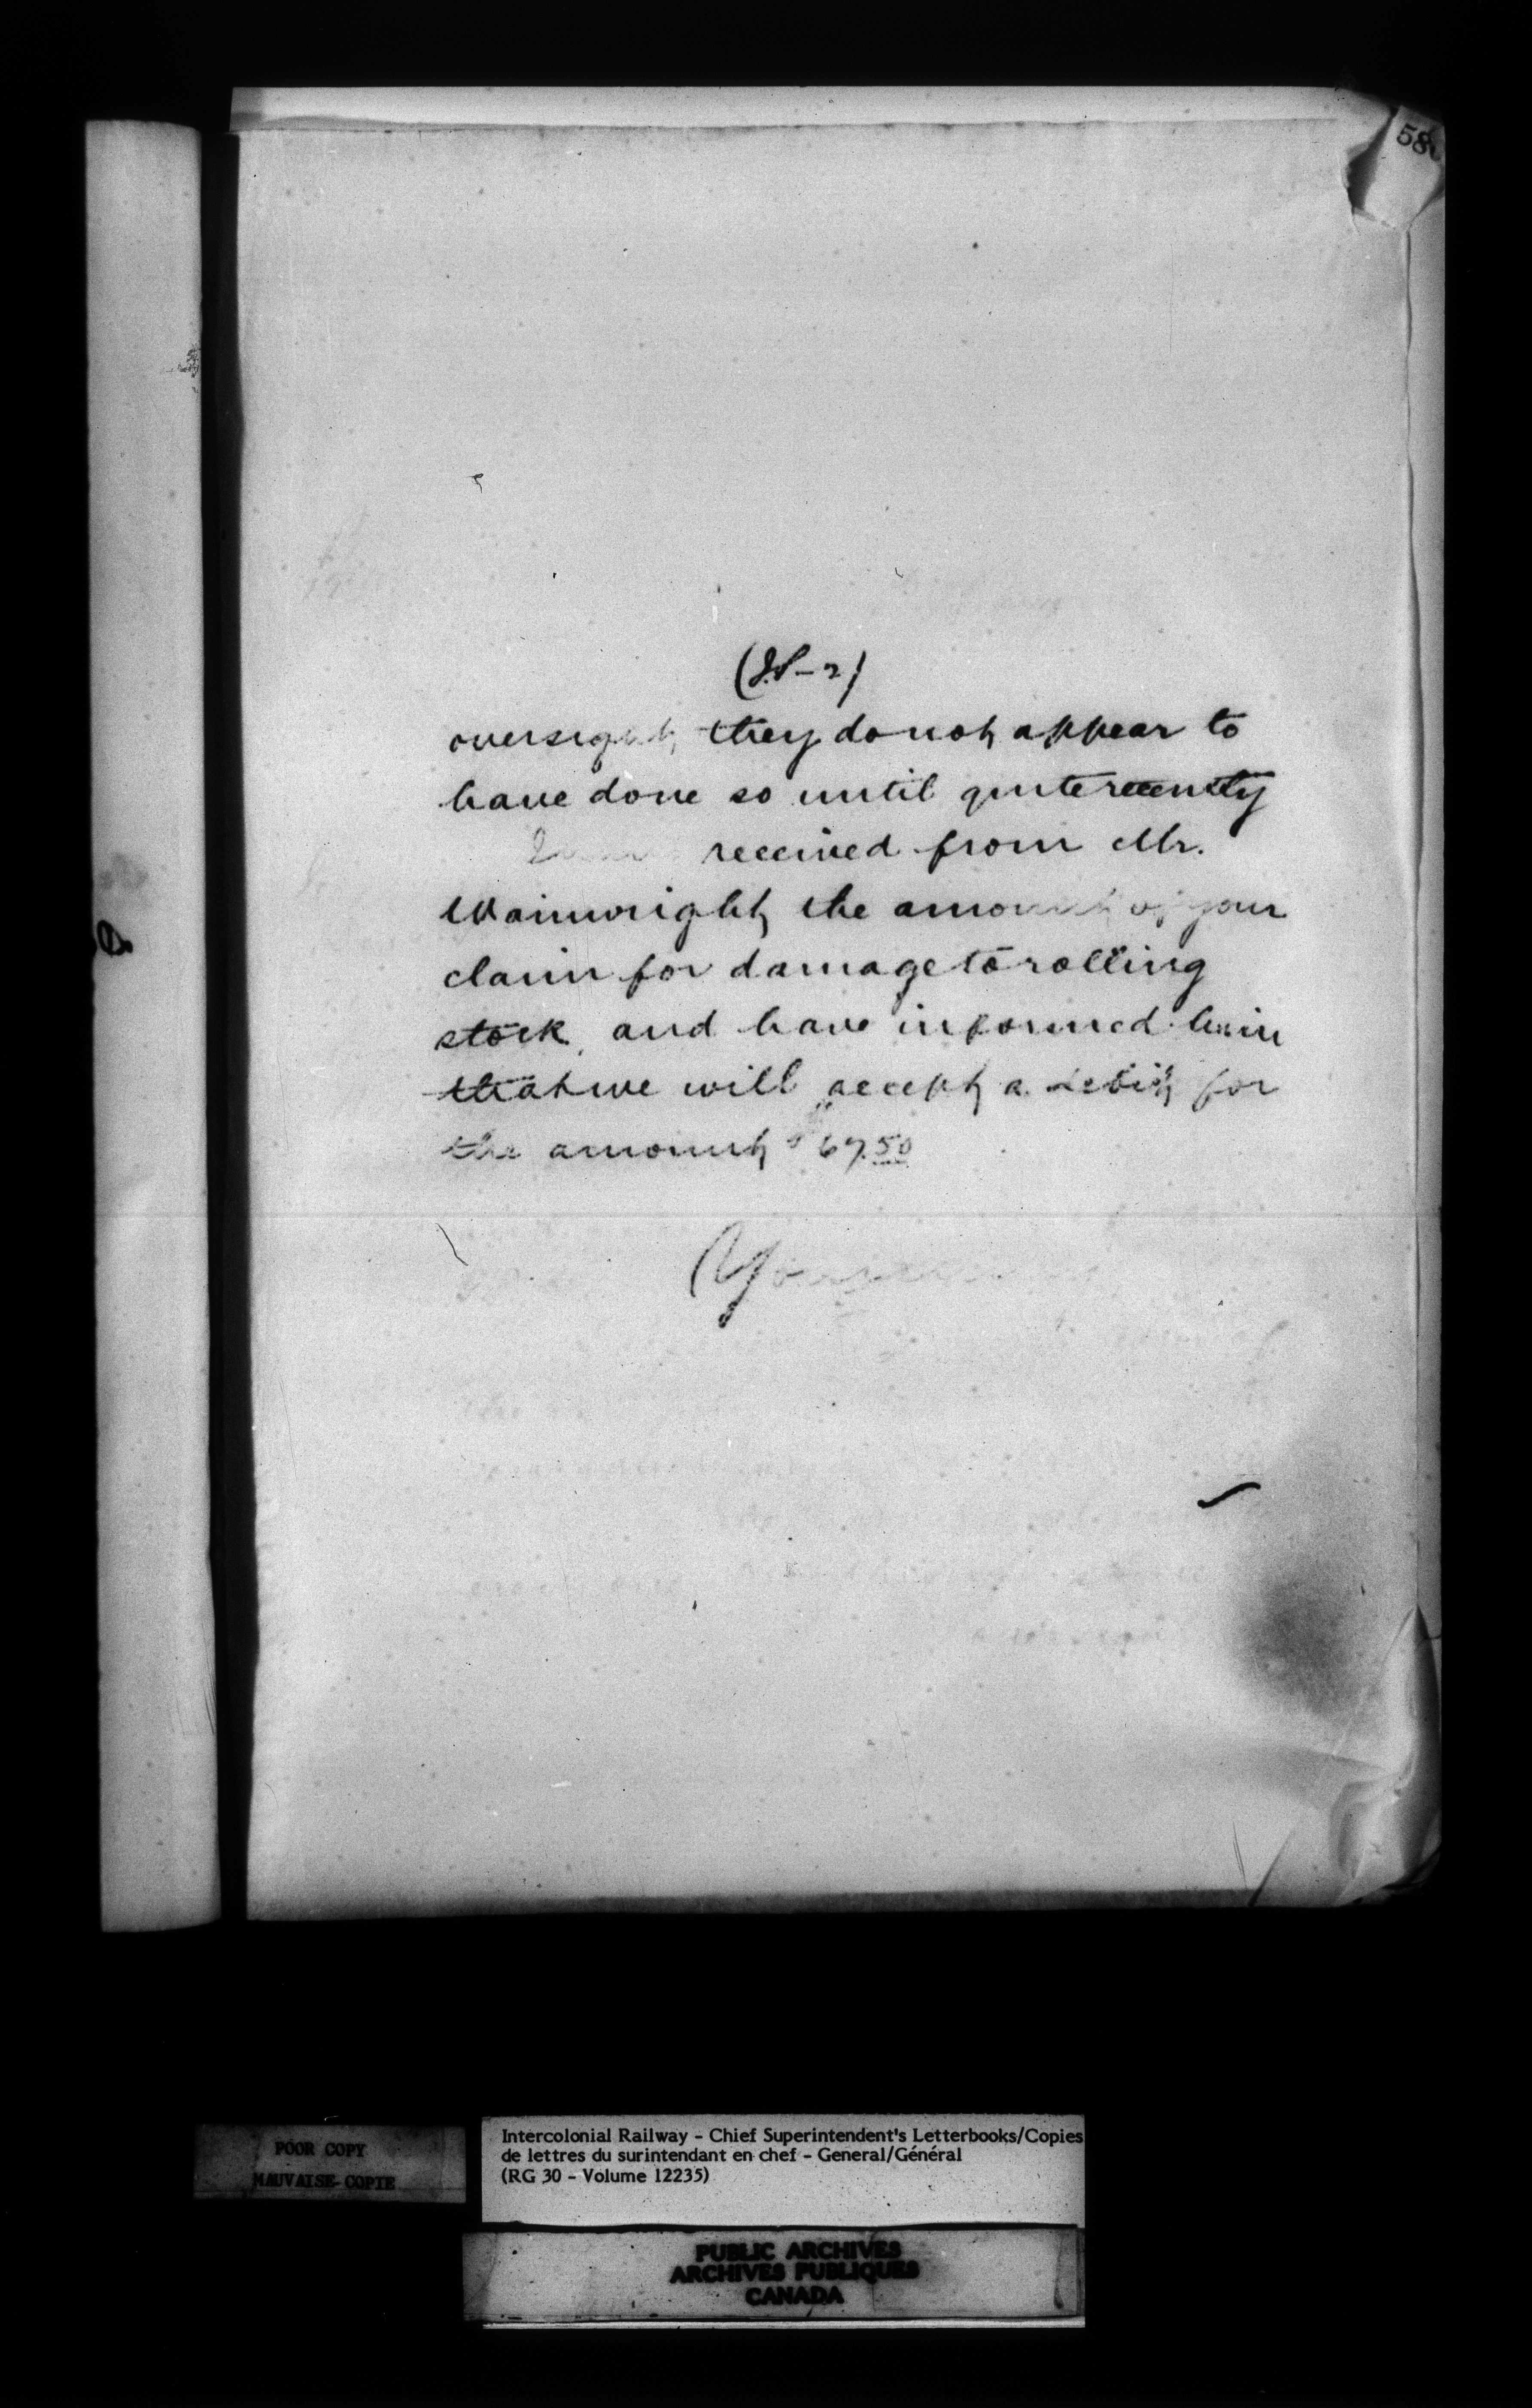 58
(J.S-2)
oversight they do not appear to
have done so until quite recently
I have received from Mr.
Wainwright the amount of your
claim for damage to rolling
stock, and have informed him
that we will accept a debit for
the amount $67.50
Yours
POOR COPY
MAUVAISE COPIE
Intercolonial Railway - Chief Superintendent's Letterbooks/Copies
de lettres du surintendant en chef - General/Général
(RG 30 - Volume 12235)
PUBLIC ARCHIVES
ARCHIVES PUBLIQUES
CANADA